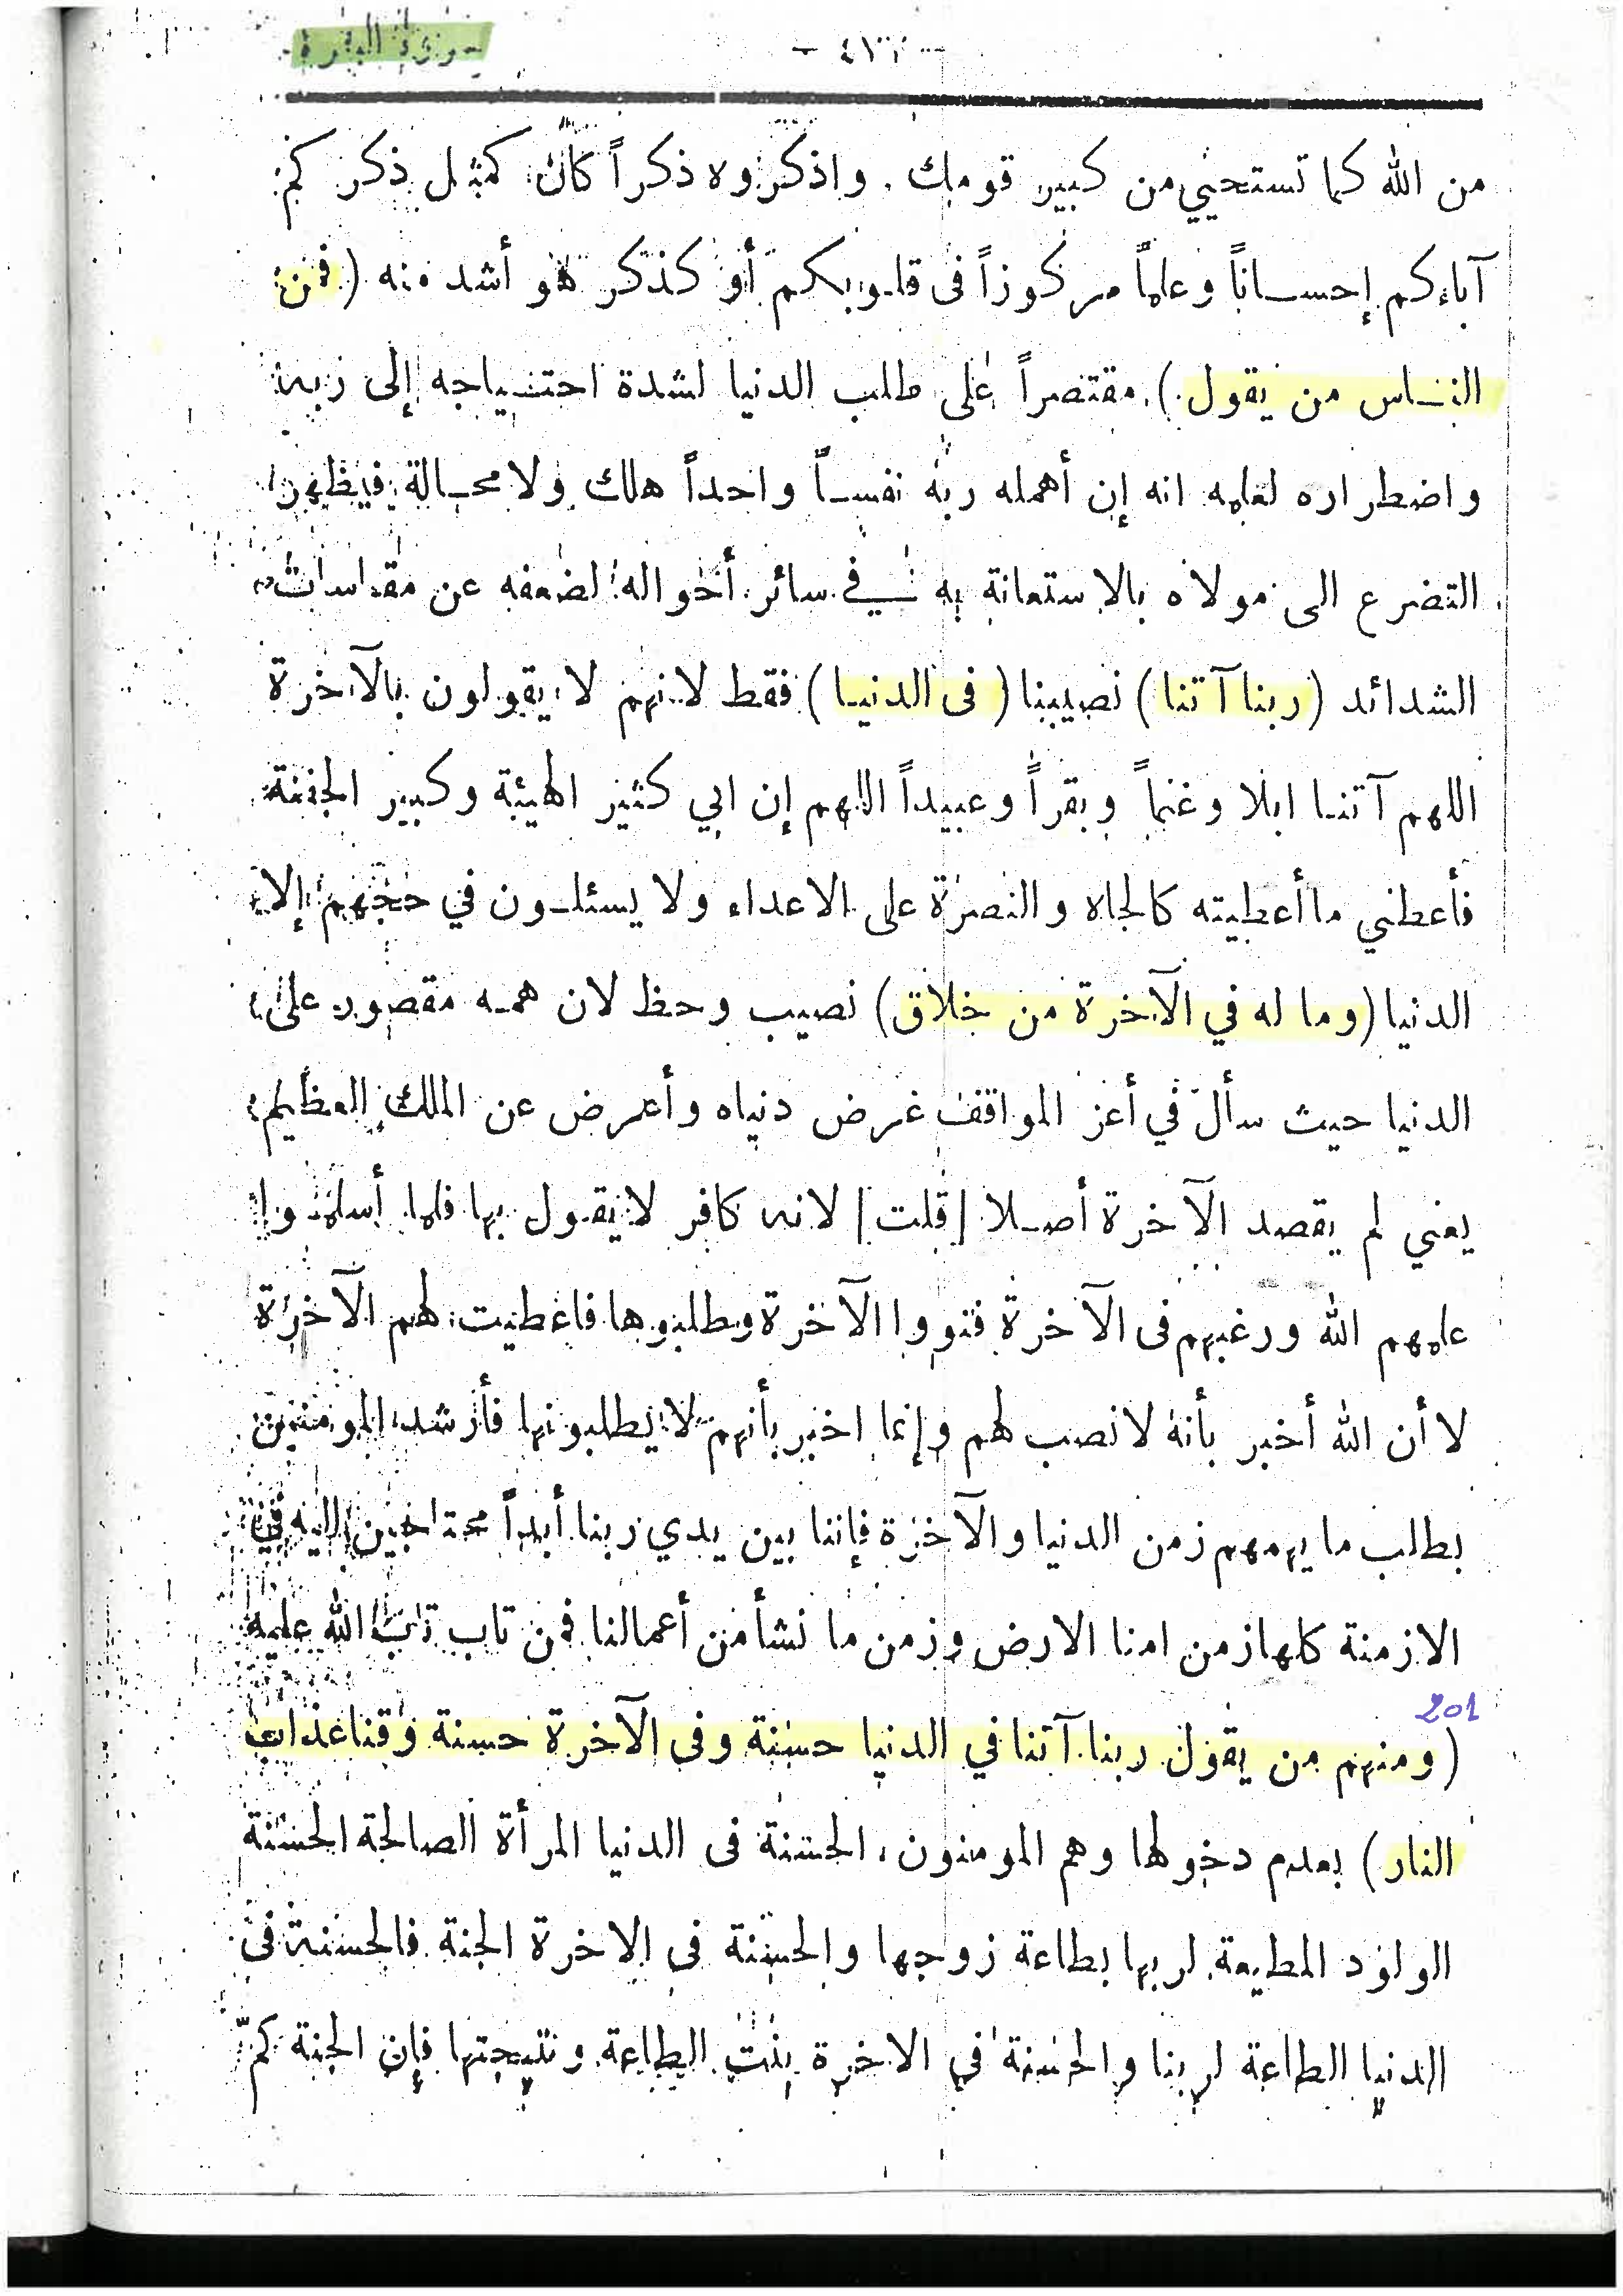 سورة البقرة
من الله كما تستحيي من كبير قومك. واذكروه ذكراً كان كمثل ذكركم
آباءكم إحساناً وعلماً مركوزاً فى قلوبكم أو كذكر هو أشد منه (فمن
الناس من يقول) مقتصراً على طلب الدنيا لشدة احتياجه إلى ربه
واضطراره لعلمه انه إن أهمله ربه نفساً واحداً هلك ولا محالة فيظهر
التضرع الى مولاه بالاستعانة به في سائر أحواله لضعفه عن مقاسات
الشدائد (ربنا آتنا) نصيبنا (فى الدنيا) فقط لانهم لا يقولون بالآخرة
اللهم آتنا ابلا وغنماً وبقراً وعبيداً اللهم إن ابي كثير الهيئة وكبير الجفنة
فأعطني ما أعطيته كالجاه والنصرة على الاعداء ولا يسئلون في حجهم إلا
الدنيا (وما له في الآخرة من خلاق) نصيب وحظ لان همه مقصور على
الدنيا حيث سأل في أعز المواقف غرض دنياه وأعرض عن الملك العظيم
يعني لم يقصد الآخرة أصلا [قلت] لانه كافر لا يقول بها فلما أسلموا
علمهم الله ورغبهم فى الآخرة فنووا الآخرة وطلبوها فاعطيت لهم الآخرة
لا أن الله أخبر بأنه لا نصب لهم وإنما اخبر بأنهم لا يطلبونها فأرشد المومنين
بطلب ما يهمهم زمن الدنيا والآخرة فإننا بين يدي ربنا أبداً محتاجين اليه في
الازمنة كلها زمن امنا الارض وزمن ما نشأ من أعمالنا فمن تاب تاب الله عليه
201
(ومنهم من يقول ربنا آتنا في الدنيا حسنة وفى الآخرة حسنة وقنا عذاب
النار) بعدم دخولها وهم المومنون، الحسنة فى الدنيا المرأة الصالحة الحسنة
الولود المطيعة لربها بطاعة زوجها والحسنة فى الاخرة الجنة فالحسنة فى
الدنيا الطاعة لربنا والحسنة في الاخرة بنت الطاعة ونتيجتها فإن الجنة كم